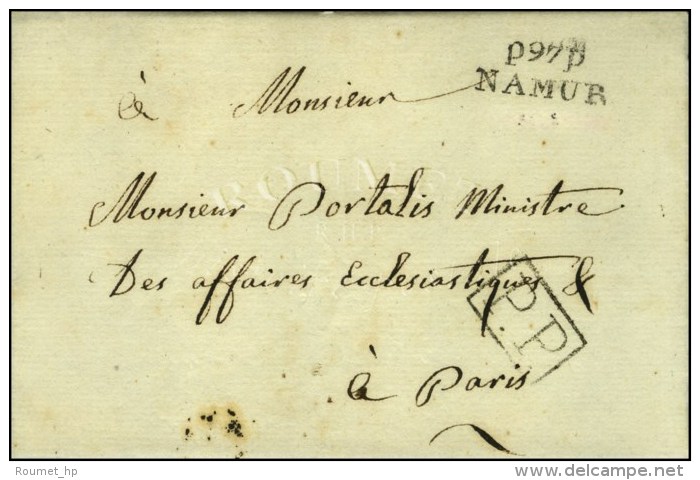 p97p
NAMUR
à Monsieur
Monsieur Portalis Ministre
Des affaires Ecclesiastiques &
P.P
à Paris
Roumet_hp
delcampe.net